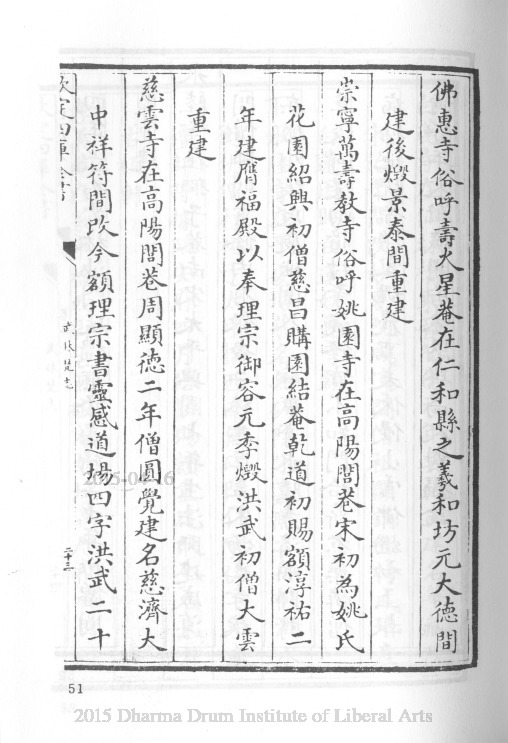 佛惠寺俗呼壽火星菴在仁和縣之羲和坊元大德間
建後燬景泰間重建
崇寧萬壽教寺俗呼姚園寺在高陽閭巷宋初為姚氏
花園紹興初僧慈昌購園結菴乾道初賜額淳祐二
年建膺福殿以奉理宗御容元季燬洪武初僧大雲
重建
慈雲寺在高陽閭巷周顯德二年僧圓覺建名慈濟大
中祥符間改今額理宗書靈感道場四字洪武二十
欽定四庫全書
武林梵志
二十三
2015-04-16
51
2015 Dharma Drum Institute of Liberal Arts